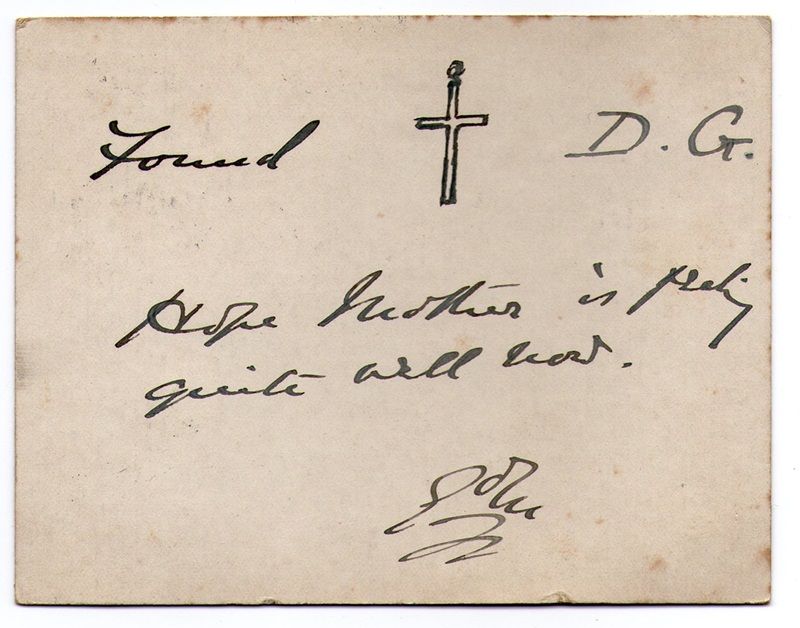 Found D. G.
Hope Mother is
quite well now.